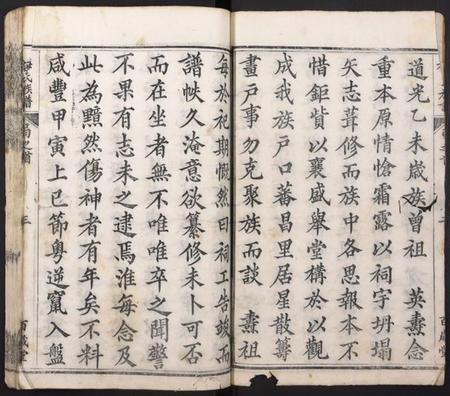 道光乙未歲族曾祖 英燾念
重本原情愴霜露以祠宇坍塌
矢志葺修而族中各思報本不
惜鉅貲以襄盛舉堂構於以觀
成我族戶口蕃昌里居星散籌
畫戶事勿克聚族而談 燾祖
每於祀期慨然曰祠工告竣而
譜帙久淹意欲纂修未卜可否
而在坐者無不唯唯卒之聞警
不果有志未之逮焉淮每念及
此為黯然傷神者有年矣不料
咸豐甲寅上巳節粵逆竄入盤
氏族譜
三
百歲堂